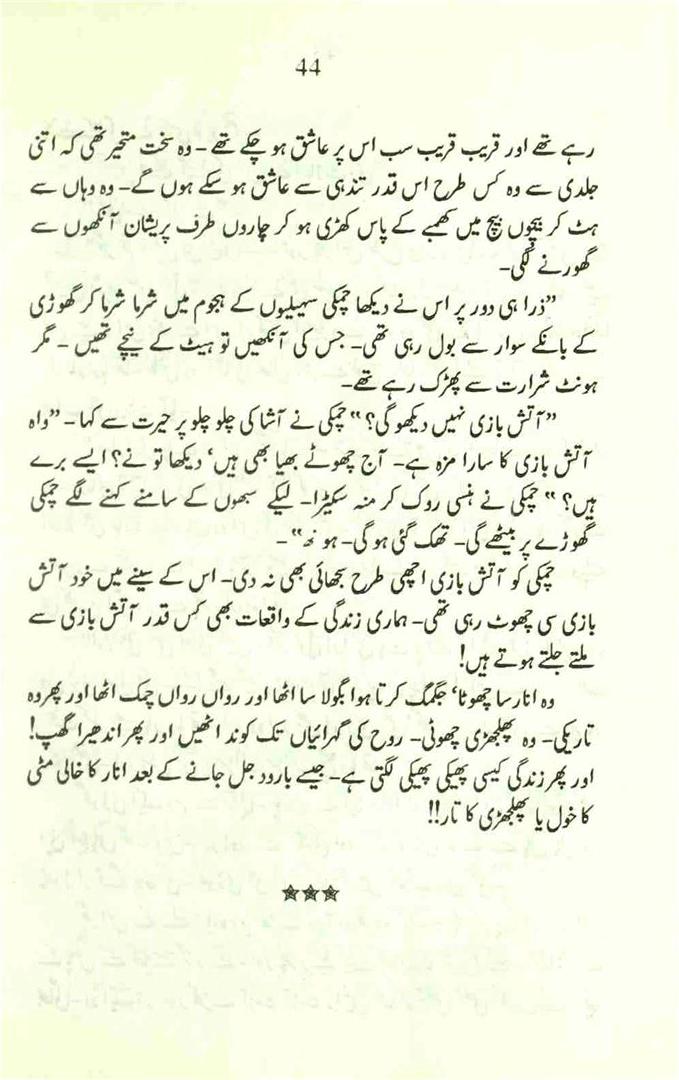 44
رہے تھے اور قریب قریب سب اس پر عاشق ہو چکے تھے - وہ سخت متحیر تھی کہ اتنی
جلدی سے وہ کس طرح اس قدر تندہی سے عاشق ہو سکے ہوں گے- وہ وہاں سے
ہٹ کر بیچوں بیچ میں کھمبے کے پاس کھڑی ہو کر چاروں طرف پریشان آنکھوں سے
گھورنے لگی-
”ذرا ہی دور پر اس نے دیکھا چمکی سہیلیوں کے ہجوم میں شرما شرما کر گھوڑی
کے بانکے سوار سے بول رہی تھی- جس کی آنکھیں تو ہیٹ کے نیچے تھیں - مگر
ہونٹ شرارت سے پھڑک رہے تھے-
”آتش بازی نہیں دیکھو گی؟“ چمکی نے آشا کی چلو چلو پر حیرت سے کہا - ”واہ
آتش بازی کا سارا مزہ ہے- آج چھوٹے بھیا بھی ہیں‘ دیکھا تو نے؟ ایسے برے
ہیں؟“ چمکی نے ہنسی روک کر منہ سکیڑا- لیکے سبھوں کے سامنے کہنے لگے چمکی
گھوڑے پر بیٹھے گی- تھک گئی ہو گی- ہو نھ“ -
چمکی کو آتش بازی اچھی طرح بجھائی بھی نہ دی- اس کے سینے میں خود آتش
بازی سی چھوٹ رہی تھی- ہماری زندگی کے واقعات بھی کس قدر آتش بازی سے
ملتے جلتے ہوتے ہیں!
وہ انار سا چھوٹا‘ جگمگ کرتا ہوا بگولا سا اٹھا اور رواں رواں چمک اٹھا اور پھر وہ
تاریکی- وہ پھلجھڑی چھوٹی- روح کی گہرائیاں تک کوند اٹھیں اور پھر اندھیرا گھپ!
اور پھر زندگی کیسی پھیکی پھیکی لگتی ہے- جیسے بارود جل جانے کے بعد انار کا خالی مٹی
کا خول یا پھلجھڑی کا تار!!
★★★